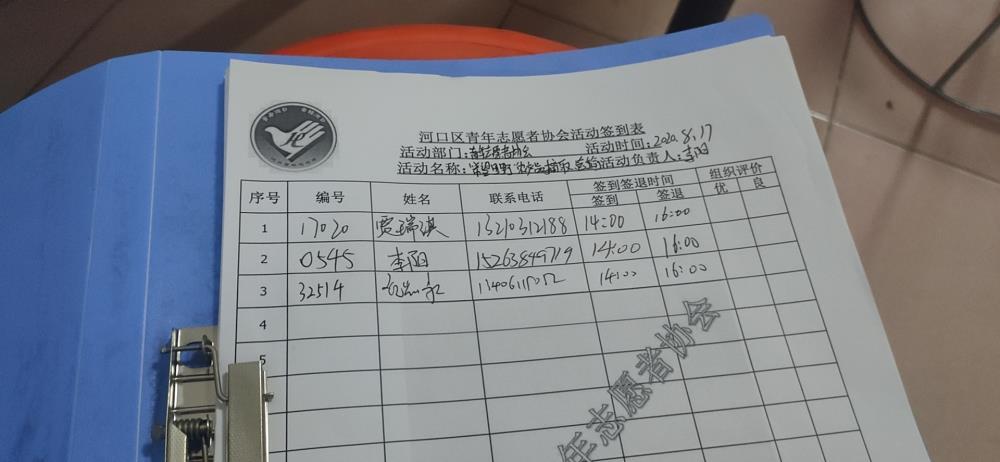 河口区青年志愿者协会活动签到表
活动部门:青年志愿者协会 活动时间:2020.8.17
活动名称: 活动负责人:李阳
序号 编号 姓名 联系电话 签到签退时间 组织评价
签到 签退 优 良
1 17020 贾瑞淇 13210312188 14:00 16:00
2 0545 李阳 15263849719 14:00 16:00
3 32514 14:00 16:00
4
5
年志愿者协会